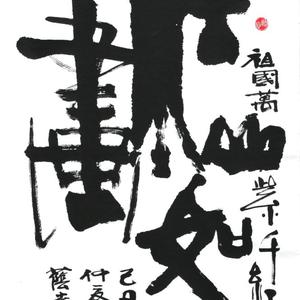 祖國萬
紫千紅
山如
畫
己丑
仲夏